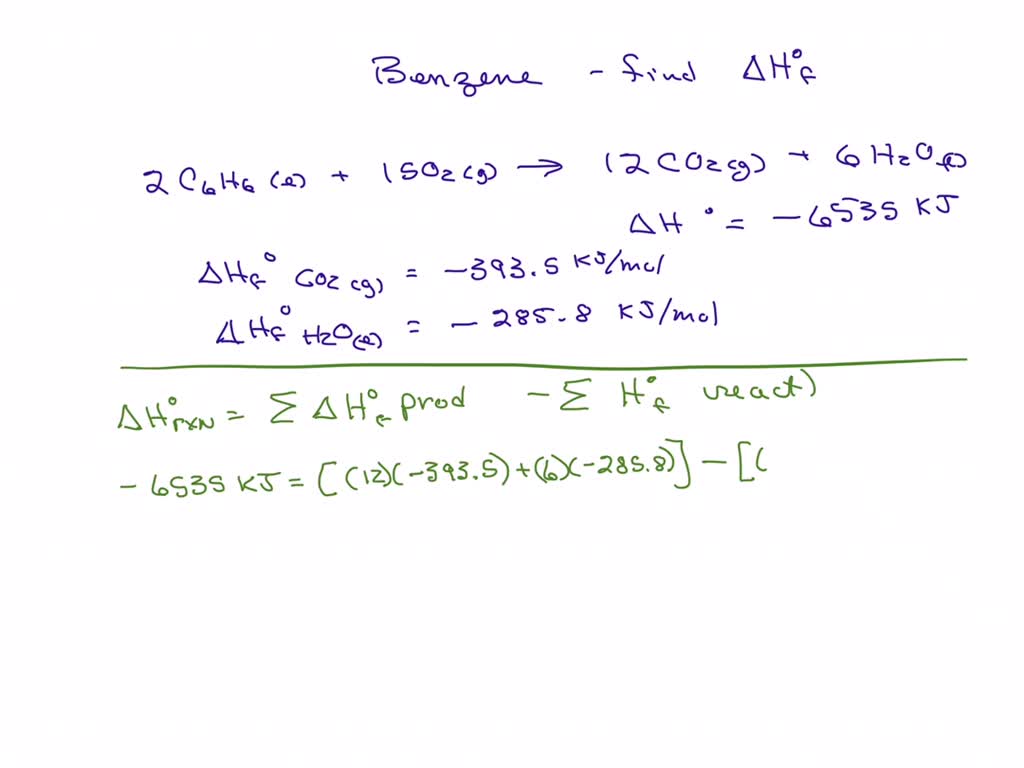 Benzene - find ΔH°f
2 C6H6 (l) + 15O2 (g) → 12 CO2 (g) + 6 H2O (l)
ΔH° = -6535 KJ
ΔHf° CO2 (g) = -393.5 KJ/mol
ΔHf° H2O (l) = - 285.8 KJ/mol
ΔH°rxn = Σ ΔH°f prod - Σ H°f react)
- 6535 KJ = [(12)(-393.5)+(6)(-285.8)] - [(